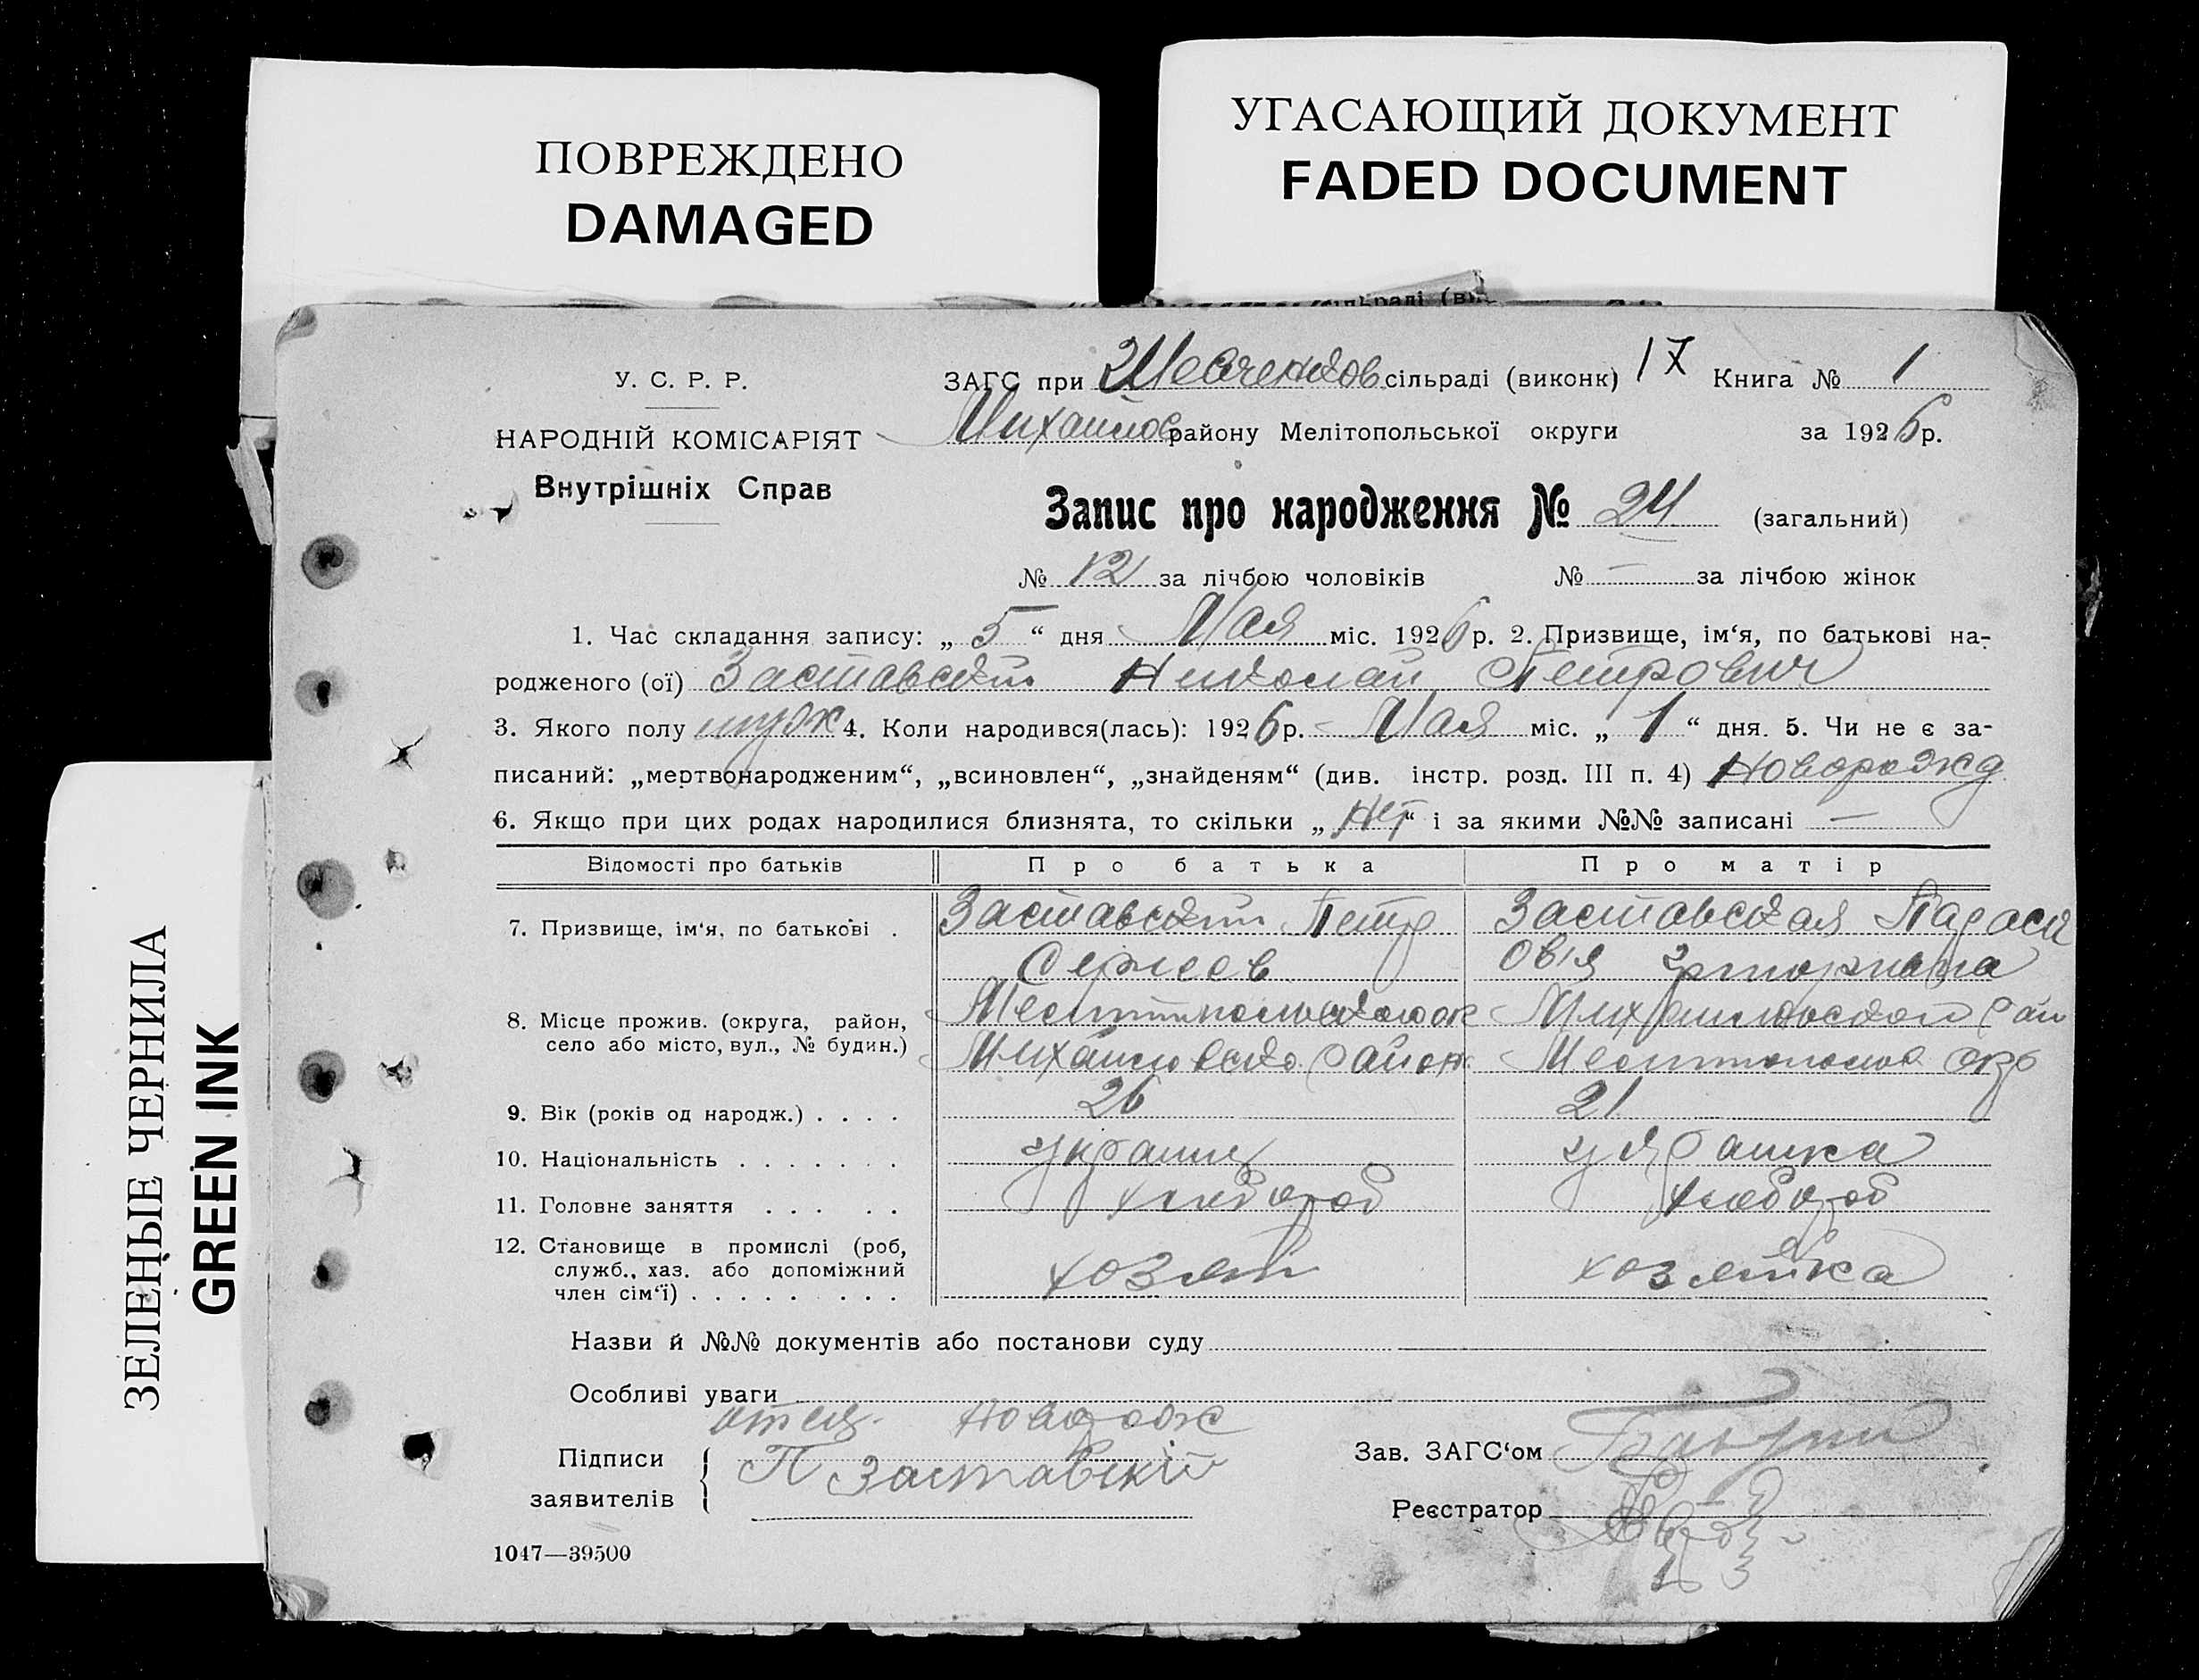 ПОВРЕЖДЕНО
DAMAGED
УГАСАЮЩИЙ ДОКУМЕНТ
FADED DOCUMENT
ЗЕЛЕНЫЕ ЧЕРНИЛА
GREEN INK
сільраді (ви
У. С. Р. Р.
НАРОДНІЙ КОМІСАРІЯТ
Внутрішніх Справ
ЗАГС при Шевченков сільраді (виконк) 17 Книга № 1
Михайлов району Мелітопольської округи за 1926 р.
Запис про народження № 24 (загальний)
№ 12 за лічбою чоловіків № — за лічбою жінок
1. Час складання запису: „ 5 “ дня Мая міс. 1926 р. 2. Призвище, ім‘я, по батькові на-
родженого (ої) Заставский Николай Петрович
3. Якого полу муж 4. Коли народився(лась): 1926 р. Мая міс. „ 1 “ дня. 5. Чи не є за-
писаний: „мертвонародженим“, „всиновлен“, „знайденям“ (див. інстр. розд. III п. 4)Новорожд
6. Якщо при цих родах народилися близнята, то скільки „ Нет “ і за якими №№ записані —
Відомості про батьків Про батька Про матір
7. Призвище, ім‘я, по батькові . Заставский Петр Заставская Параск
Сергеев овія
8. Місце прожив. (округа, район, Михайловской рай
село або місто, вул., № будин.) Михайловско район Мелитопольс окр
9. Вік (років од народж.) . . . . 26 21
10. Національність . . . . . . . украинец украинка
11. Головне заняття . . . . . хлебороб хлебороб
12. Становище в промислі (роб, хозяин хозяйка
служб., хаз. або допоміжний
член сім‘ї) . . . . . . . . .
Назви й №№ документів або постанови суду
Особливі уваги
отец новорож
Підписи П Заставскій
заявителів
Зав. ЗАГС‘ом
Реєстратор
1047—39500